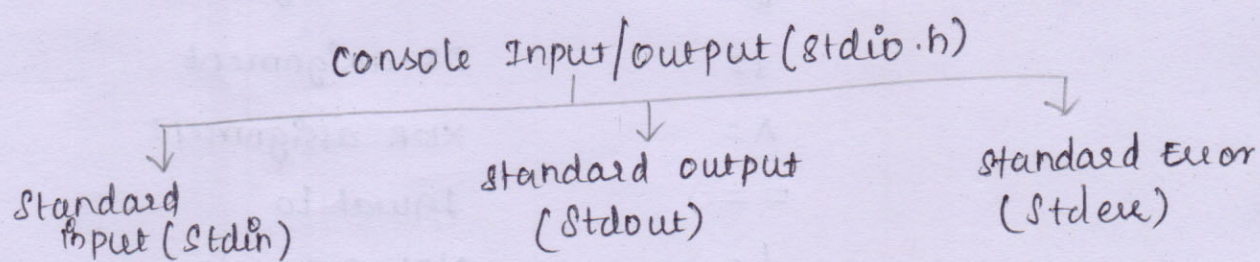 Console Input/output (stdio.h)
Standard
input (stdin)
Standard output
(stdout)
Standard Error
(stderr)